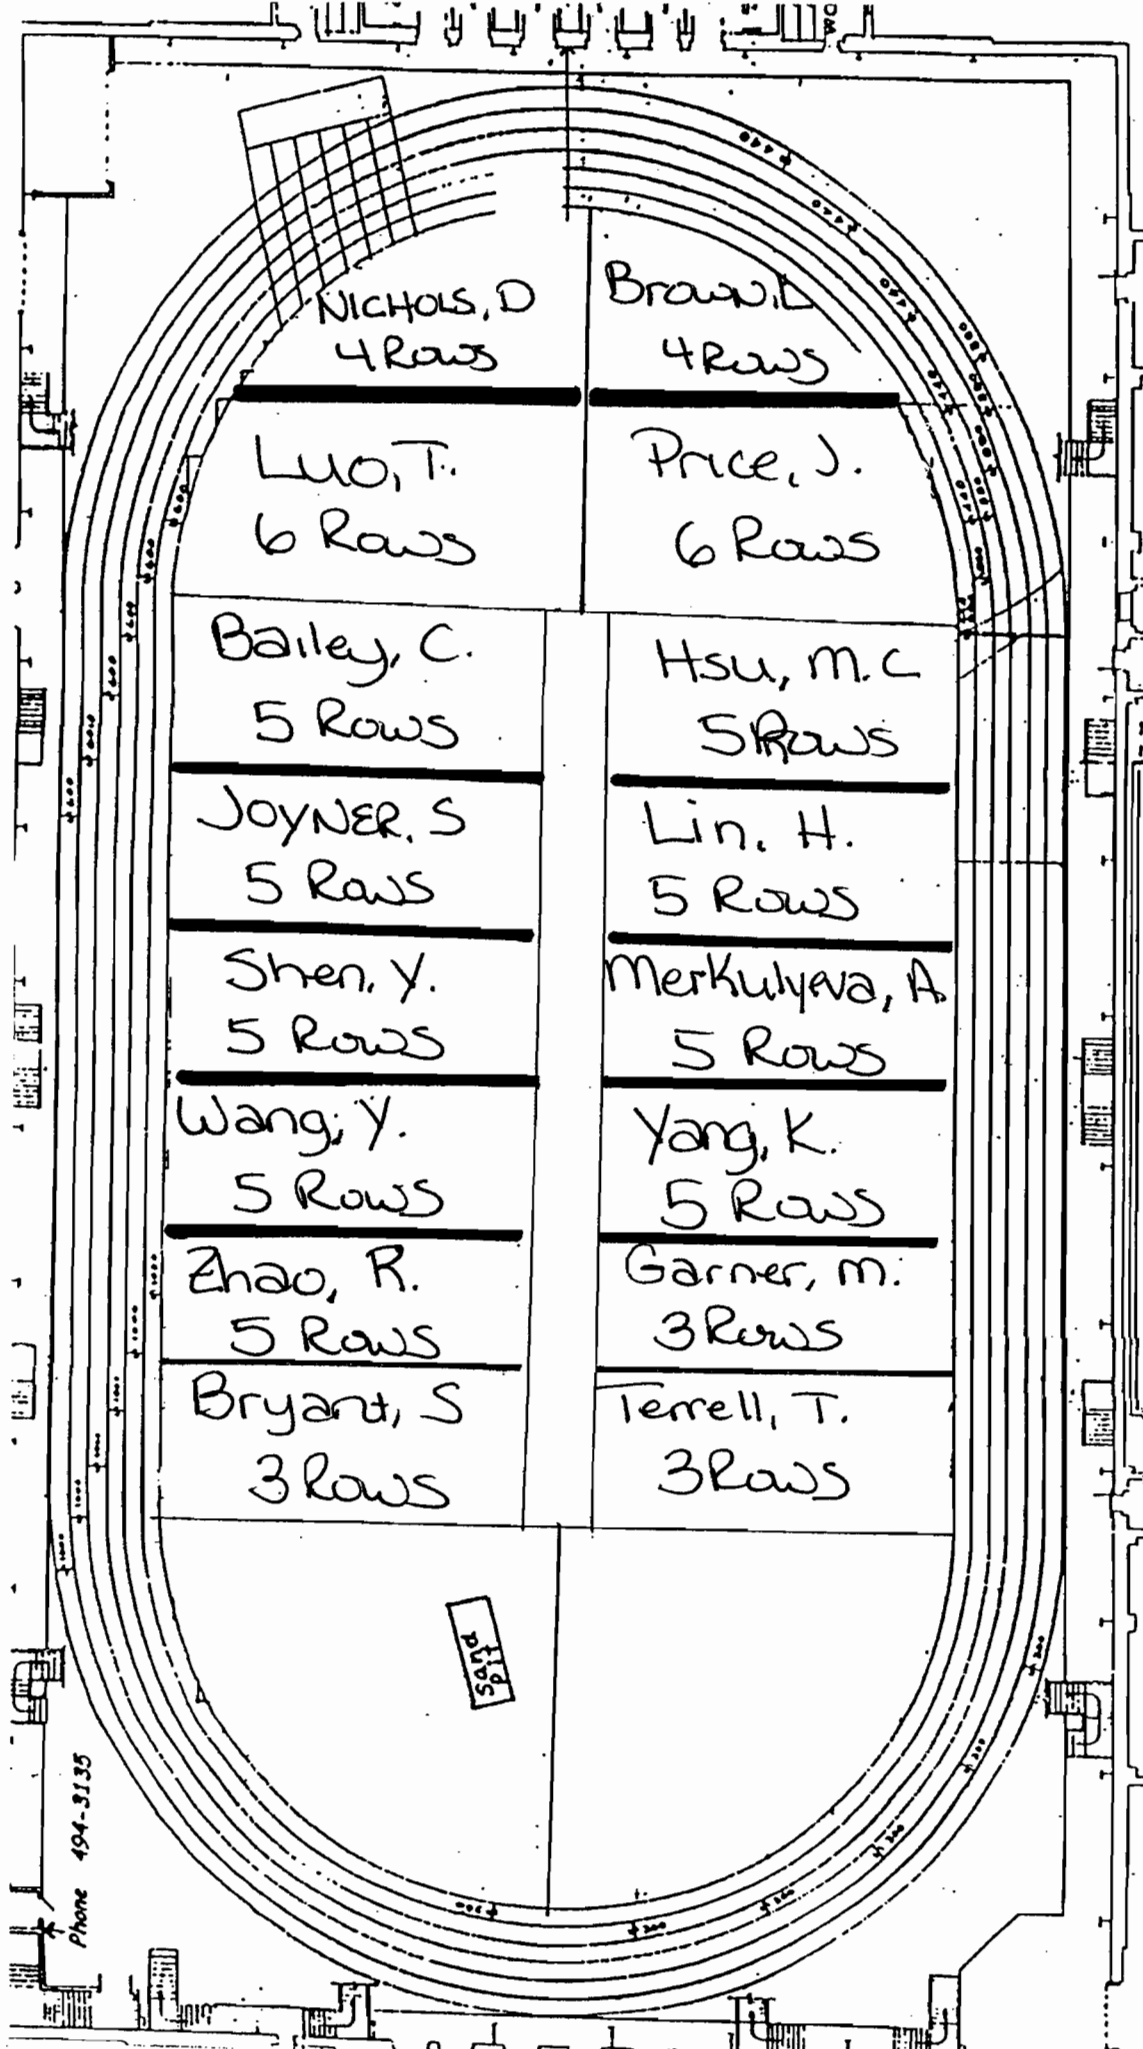 NICHOLS, D
4 Rows
Brown, D
4 Rows
Luo, T.
6 Rows
Price, J.
6 Rows
Bailey, C.
5 Rows
Hsu, M.C
5 Rows
JOYNER, S
5 Rows
Lin, H.
5 Rows
Shen, Y.
5 Rows
Merkulyeva, A
5 Rows
Wang, Y.
5 Rows
Yang, K.
5 Rows
Zhao, R.
5 Rows
Garner, M.
3 Rows
Bryant, S
3 Rows
Terrell, T.
3 Rows
Sand
pit
Phone 494-3135